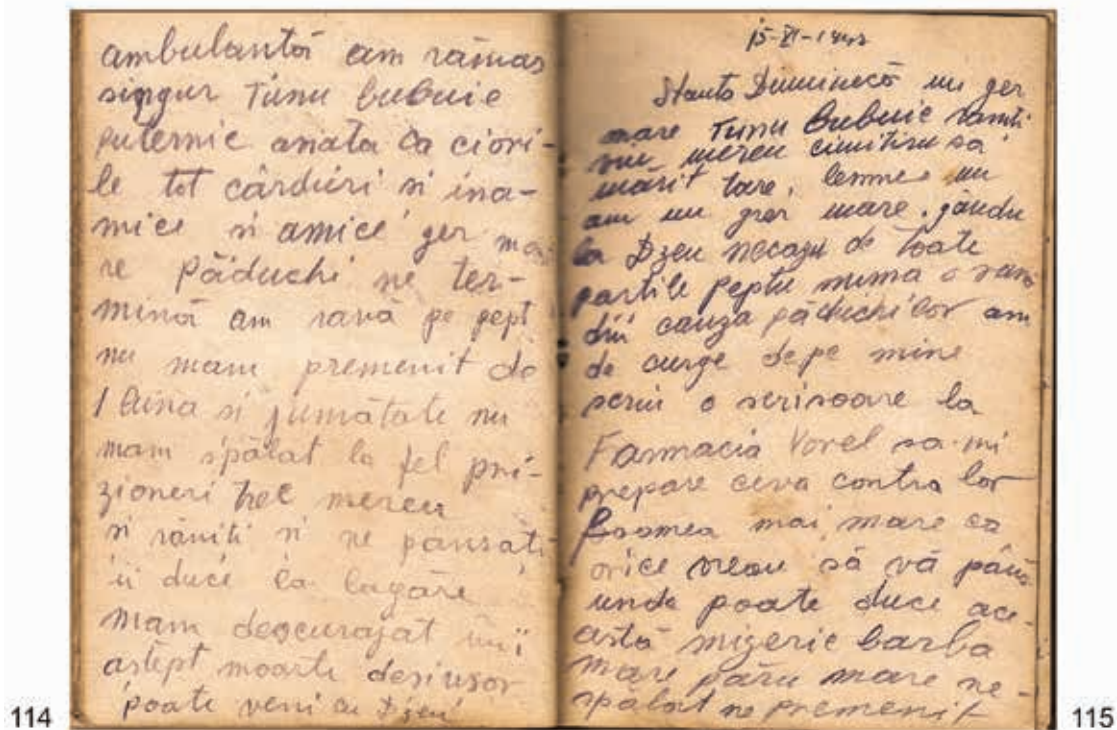 ambulantă am rămas
singur Tunu bubuie
puternic anata ca ciori-
le tot cârduri si ina-
mice si amice ger ma
re păduchi ne ter-
mină am rană pe pept
nu mam premenit de
1 luna si jumătate nu
mam spălat la fel pri-
zioneri trec mereu
si răniti si ne pansati
ii duce la lagăre
mam descurajat îmi
astept moarte desiusor
poate veni cu Dzeu
114
15-XI-1942
Stauto Duminecă un ger
mare Tunu bubuie raniti
vin mereu cimitiru sa
mărit tare. lemne nu
am un ger mare. gandu
la Dzeu necazu de toate
partile peptu mima o rană
din cauza păduchilor am
de curge depe mine
scriu o scrisoare la
Farmacia Vorel sa-mi
prepare ceva contra lor
Foamea mai mare ca
orice vreau să vă până
unde poate duce ace-
astă mizerie barba
mare păru mare ne-
spălat ne premenit
115